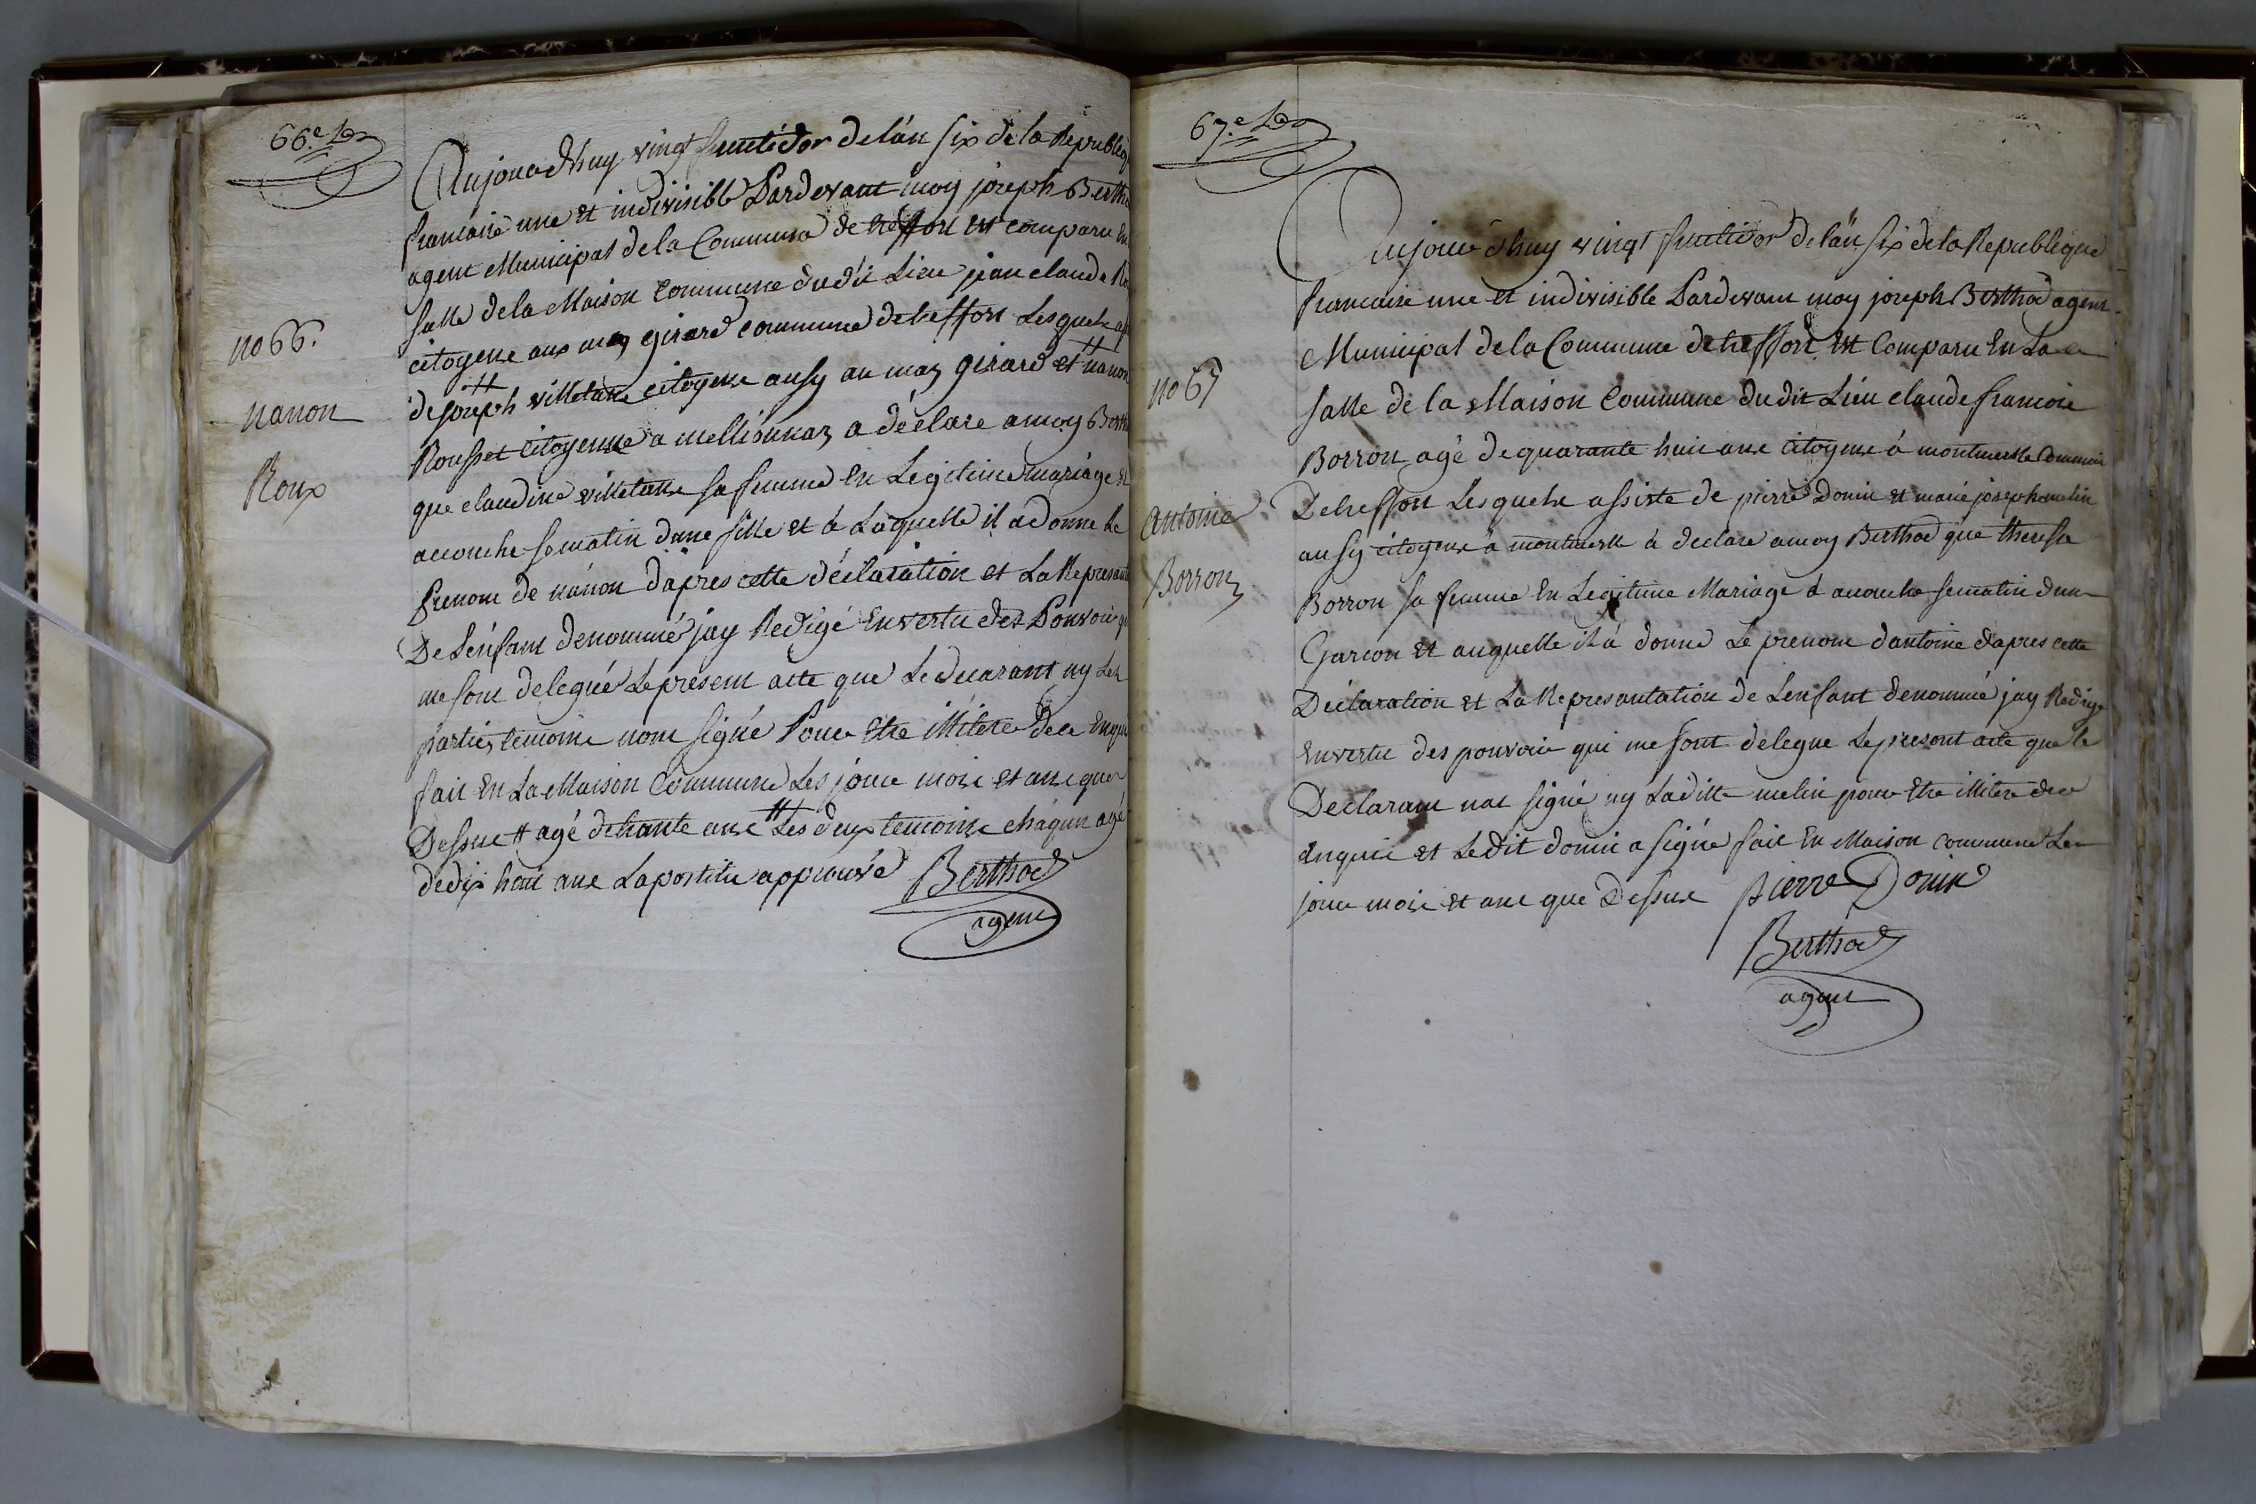 66.e
Aujourdhuy vingt fructidor de lán six de la Republiq
francaise une et indivisible Pardevant moy joseph Bertho
agent Municipal de la Commune de treffort est comparu En
salle de la Maison Commune du dit Lieu jean claude
citoyens aux mas girard commune de treffort Lesquels
de joseph villetane citoyens ausy au mas girard et nanon
Rousset citoyenne a mellionnas a déclare a moy Berth
que claudine villetane sa femme En Legitime mariage
acouche sematin dune fille et à Laquelle il a donne Le
Prenom de nanon dapres cette déclaration et La Represant
De Lénfant denommé jay Redigé En vertu des Pouvoir
me sont delegué Le present acte que Le declarant ny Les
parties temoins nont signé Pour Etre illitere dece Enquis
fait En La Maison Commune Les jour mois et ans que
Dessus # agé de trante ans # Les deux temoins chàqun agé
de dix huit ans Lapostille approuvé Berthod
agent
no 66.
nanon
Roux
67.e
Aujourdhuy vingt fructidor de lán six de la Republique
francaise une et indivisible Pardevant moy joseph Berthod agent
Municipal de la Commune de treffort Est Comparu En La
salle de la Maison Commune du dit Lieu claude francois
Borron agé de quarante huit ans Citoyens à montmerle Commune
De treffort Lesquels assiste de pierre Donin et marie joseph melin
ausy citoyens à montmerle à declare a moy Berthod que theresse
Borron sa femme En Legitime Mariage à acouche sematin dun
Garcon et auquelle il à donne Le prenom dantoine dapres cette
Déclaration et La Represantation de Lenfant denommé jay Redige
En vertu des pouvoir qui me sont delegue Le present acte que le
Declarant nat signé ny Laditte melin pour Etre illitere dece
Enquis et Ledit donin a signé fait En Maison commune Les
jour mois et ans que Dessus pierre Donin
Berthod
agent
no 67
antoine
Borron